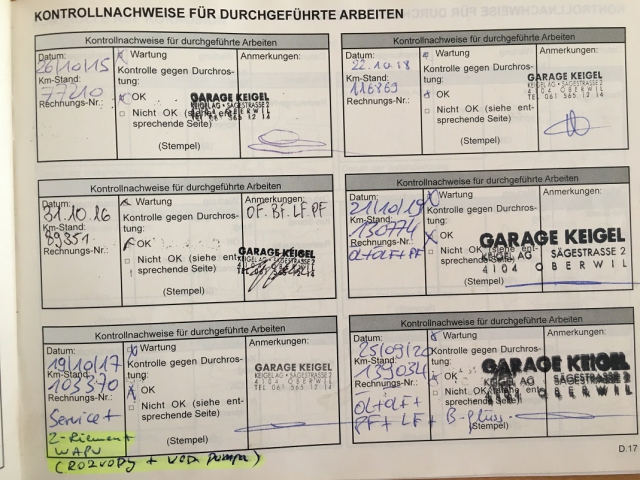 KONTROLLNACHWEISE FÜR DURCHGEFÜHRTE ARBEITEN
Kontrollnachweise für durchgeführte Arbeiten
Datum: 26/10/15
Km-Stand: 77210
Rechnungs-Nr.:
Wartung
Kontrolle gegen Durchros-
tung:
OK
Nicht OK (siehe ent-
sprechende Seite)
(Stempel)
Anmerkungen:
GARAGE KEIGEL
KEIGEL AG • SÄGESTRASSE 2
4104 OBERWIL
TEL 061 565 12 14
Kontrollnachweise für durchgeführte Arbeiten
Datum: 22.10.18
Km-Stand: 116869
Rechnungs-Nr.:
Wartung
Kontrolle gegen Durchros-
tung:
OK
Nicht OK (siehe ent-
sprechende Seite)
(Stempel)
Anmerkungen:
GARAGE KEIGEL
KEIGEL AG • SÄGESTRASSE 2
4104 OBERWIL
TEL 061 565 12 14
Kontrollnachweise für durchgeführte Arbeiten
Datum: 31.10.16
Km-Stand: 89351
Rechnungs-Nr.:
Wartung
Kontrolle gegen Durchros-
tung:
OK
Nicht OK (siehe ent-
sprechende Seite)
(Stempel)
Anmerkungen:
OF. BF. LF. PF
GARAGE KEIGEL
KEIGEL AG • SÄGESTRASSE 2
Kontrollnachweise für durchgeführte Arbeiten
Datum: 21/10/19
Km-Stand: 130774
Rechnungs-Nr.:
Öl+ölF+PF
Wartung
Kontrolle gegen Durchros-
tung:
OK
Nicht OK (siehe ent-
sprechende Seite)
(Stempel)
Anmerkungen:
GARAGE KEIGEL
KEIGEL AG SÄGESTRASSE 2
4104 OBERWIL
Kontrollnachweise für durchgeführte Arbeiten
Datum: 19/10/17
Km-Stand: 103370
Rechnungs-Nr.:
Service+
Z-Riemen+
WAPU
(ROZVODY + VODA Pumpa)
Wartung
Kontrolle gegen Durchros-
tung:
OK
Nicht OK (siehe ent-
sprechende Seite)
(Stempel)
Anmerkungen:
GARAGE KEIGEL
KEIGEL AG • SÄGESTRASSE 2
4104 OBERWIL
TEL 061 565 12 14
Kontrollnachweise für durchgeführte Arbeiten
Datum: 25/09/20
Km-Stand: 139034
Rechnungs-Nr.:
Öl+ölF+
PF + LF + B-flüss.
Wartung
Kontrolle gegen Durchros-
tung:
OK
Nicht OK (siehe ent-
sprechende Seite)
(Stempel)
Anmerkungen:
GARAGE KEIGEL
KEIGEL AG SÄGESTRASSE 2
4104 OBERWIL
D.17